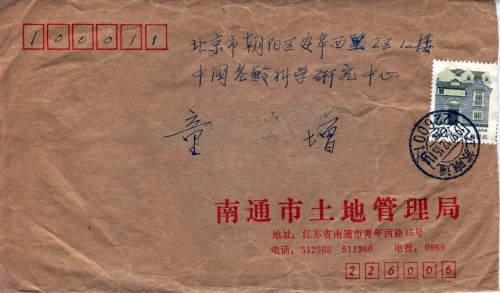 100011
北京市朝阳区安华西里2区12楼
中国老龄科学研究中心
童 增
南通市土地管理局
地址：江苏省南通市青年西路15号
电话：512565 511360 电挂：0960
226006